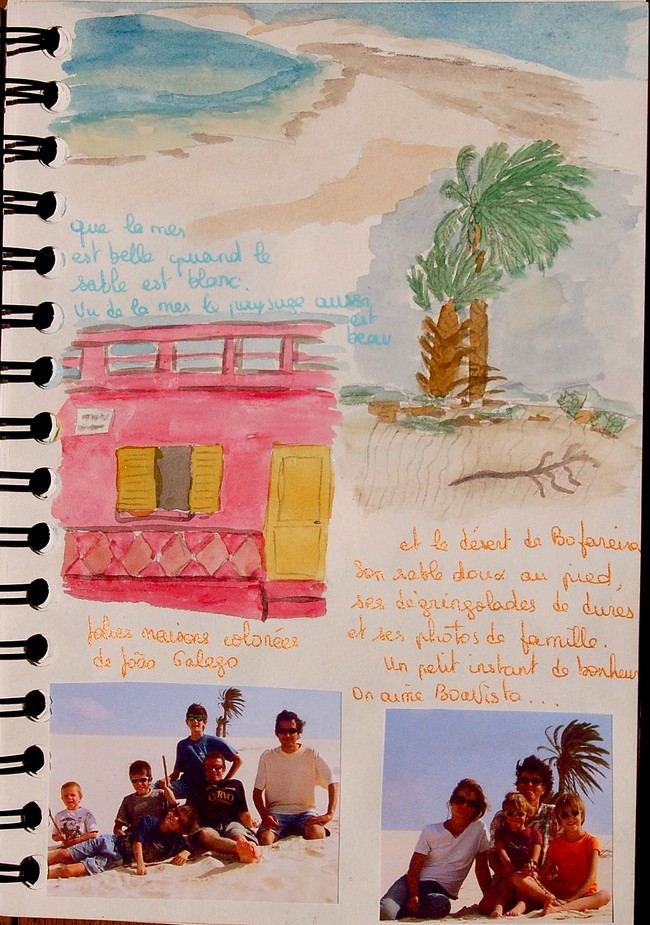 que la mer
est belle quand le
sable est blanc.
Vu de la mer le paysage aussi
est
beau
et le désert de Bofareira
Son sable doux au pied,
ses dégringolades de dunes
et ses photos de famille.
Un petit instant de bonheur
On aime BoaVista...
Jolies maisons colorées
de João Galego
CERVO